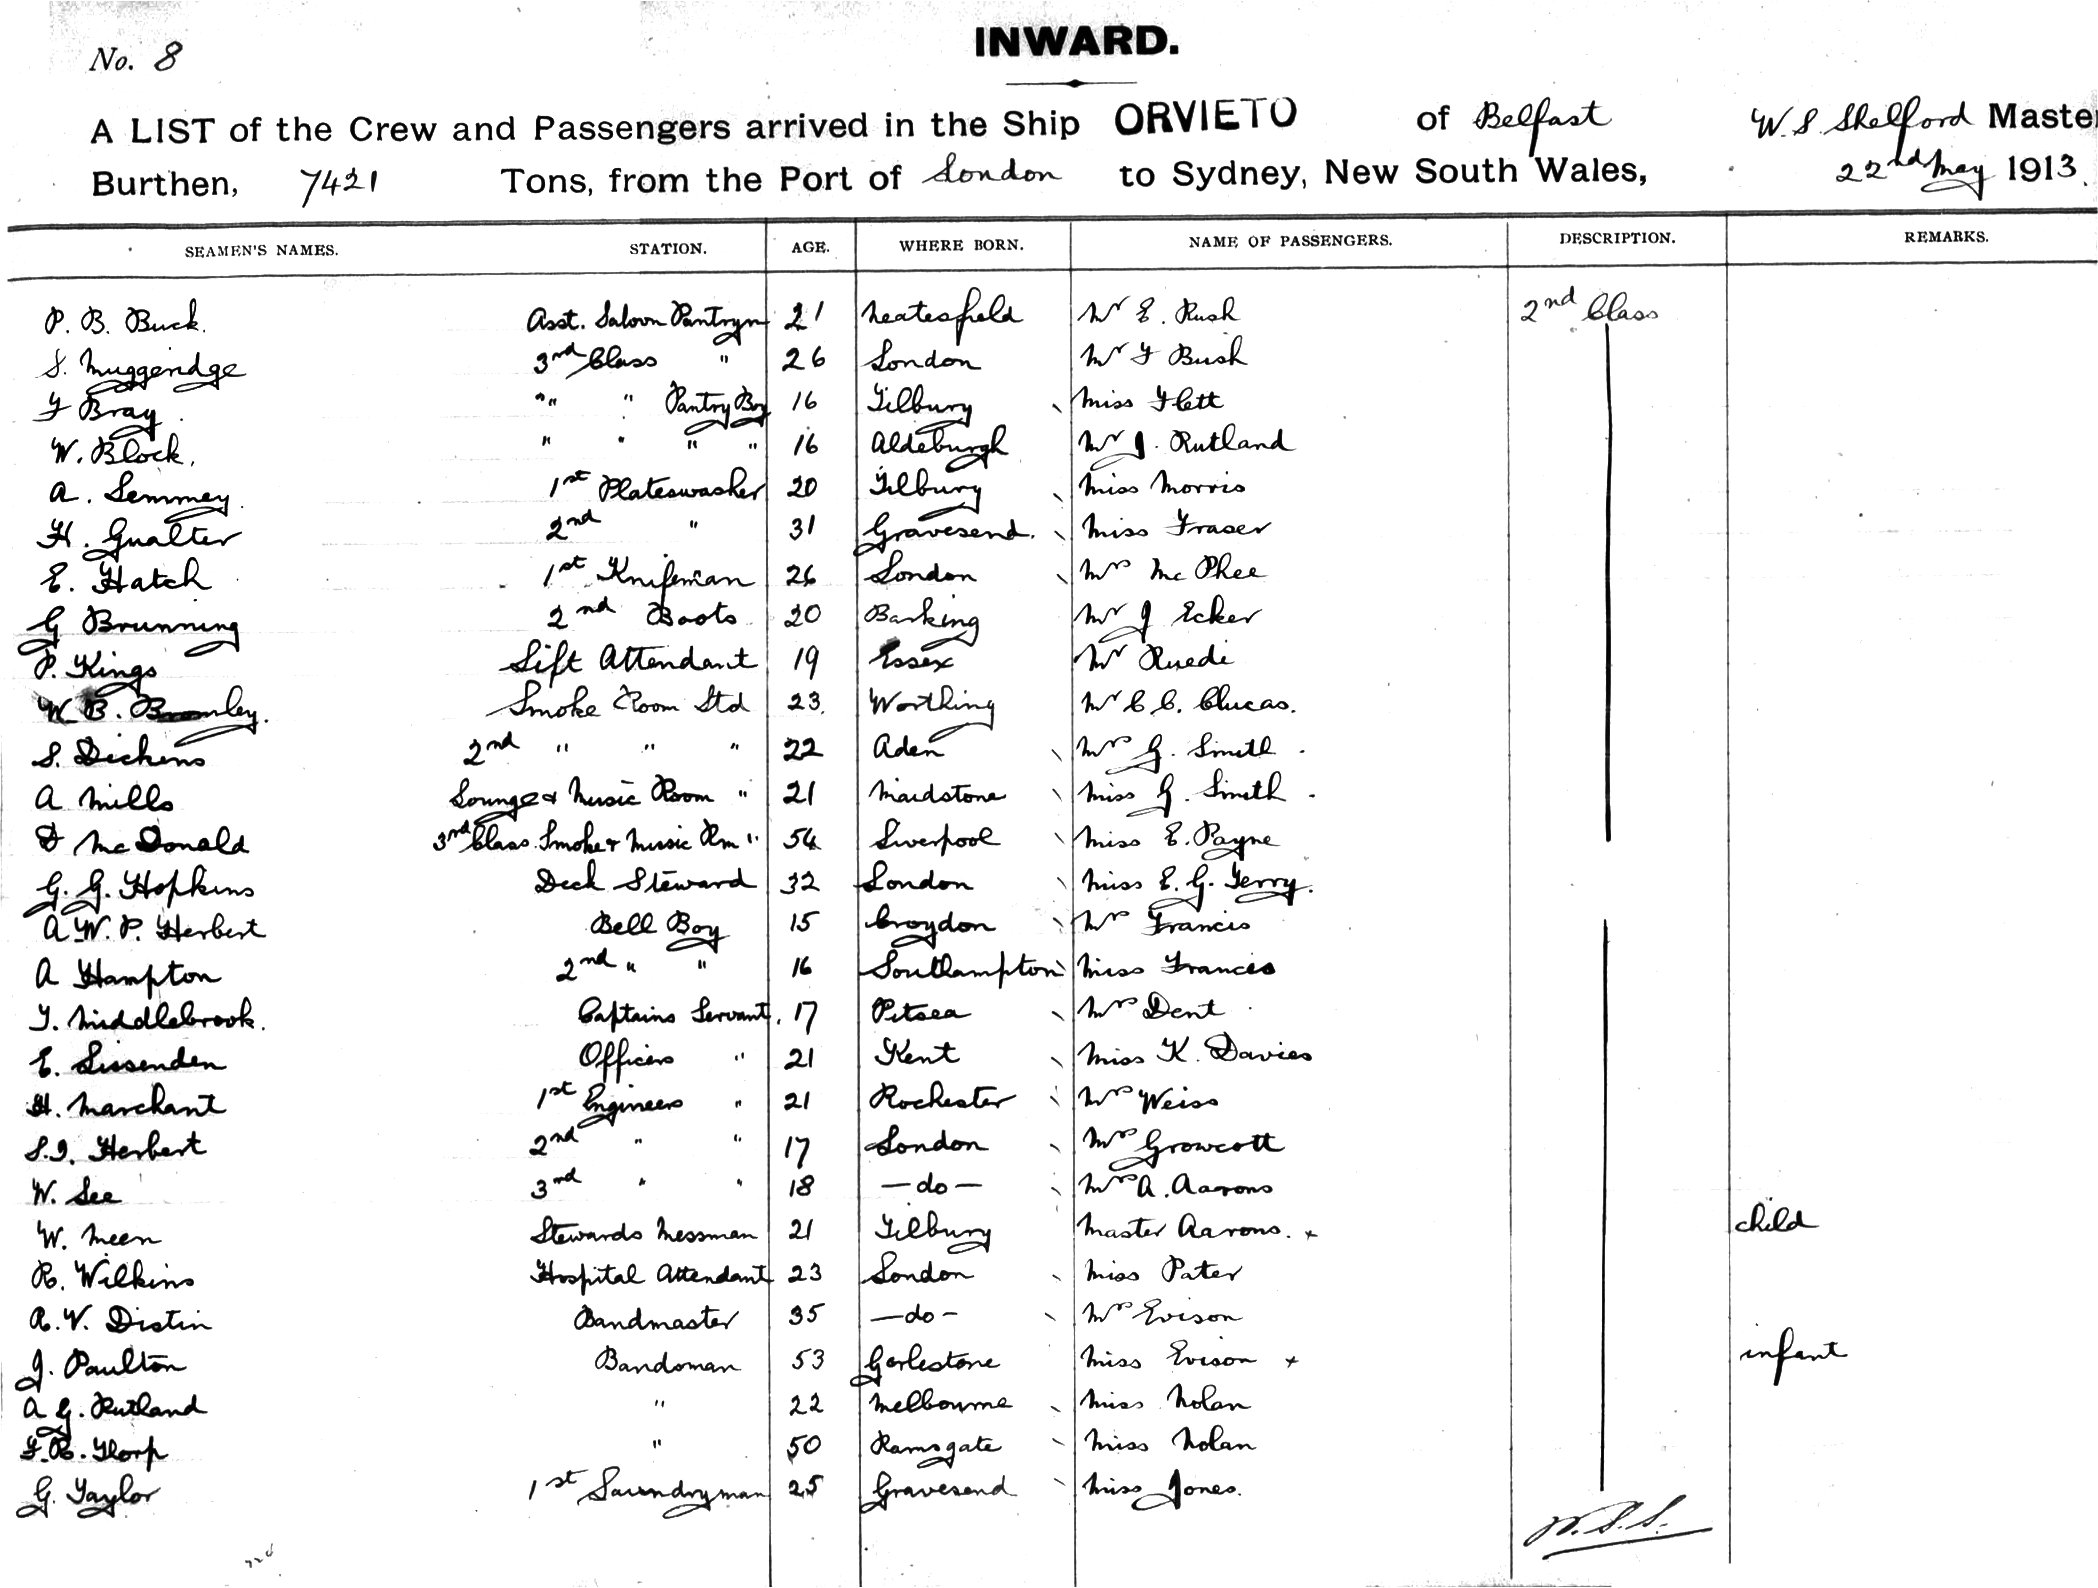 No. 8
INWARD.
A LIST of the Crew and Passengers arrived in the Ship ORVIETO of Belfast W. S. Shelford Master
Burthen, 7421 Tons, from the Port of London to Sydney, New South Wales, 22nd May 1913.
SEAMEN'S NAMES. STATION. AGE. WHERE BORN. NAME OF PASSENGERS. DESCRIPTION. REMARKS.
P. B. Buck. Asst. Saloon Pantrym 21 Neatesfield Mr E. Rush 2nd Class
S. Muggeridge 3rd Class " 26 London Mr F Bush
F Bray. " " Pantry Boy 16 Tilbury Miss Flett
W. Block. " " " " 16 Aldeburgh Mr J. Rutland
A. Semmey. 1st Plateswasher 20 Tilbury Miss Morris
H. Gualter 2nd " 31 Gravesend. Miss Fraser
E. Hatch 1st Knifeman 26 London Mrs Mc Phee
G Brunning 2nd Boots 20 Barking Mr J Ecker
P. Kings Lift Attendant 19 Essex Mr Ruedi
W. B. Bromley. Smoke Room Std 23 Worthing Mr C. C. Clucas.
S. Dickens 2nd " " " 22 Aden Mrs G. Smith
A Mills Lounge & Music Room " 21 Maidstone Miss G. Smith
D McDonald 3rd Class Smoke & Music Rm " 54 Liverpool Miss E. Payne
G. G. Hopkins Deck Steward 32 London Miss E. G. Terry.
A. W. P. Herbert Bell Boy 15 Croydon Mrs Francis
A Hampton 2nd " " 16 Southampton Miss Francis
T. Middlebrook. Captains Servant 17 Pitsea Mrs Dent
E. Sissenden Officers " 21 Kent Miss K. Davies
H. Marchant 1st Engineers " 21 Rochester Mrs Weiss
S. I. Herbert 2nd " " 17 London Mrs Growcott
W. Lee 3rd " " 18 —do— Mrs A. Aarons
W. Meen Stewards Messman 21 Tilbury Master Aarons. x child
R. Wilkins Hospital Attendant 23 London Miss Pater
R. V. Distin Bandmaster 35 —do— Mrs Evison
J. Paulton Bandsman 53 Gorlestone Miss Evison x infant
A G. Rutland " 22 Melbourne Miss Nolan
F. R. Thorp " 50 Ramsgate Miss Nolan
G. Taylor 1st Laundryman 25 Gravesend Miss Jones.
W.S.S.